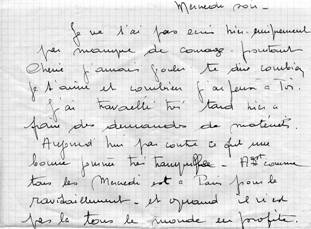 Mercredi soir -
Je ne t'ai pas écris hier. uniquement
par manque de courage. pourtant
Chérie j'aurais voulu te dire combien
je t'aime et combien j'ai pensé à Toi.
J'ai travaillé très tard hier à
faire des demandes de matériels.
Aujourd'hui par contre ce fut une
bonne journée très tranquille - comme
tous les Mercredi est à Paris pour le
ravitaillement - et quand il n'est
pas là tous le monde en profite.